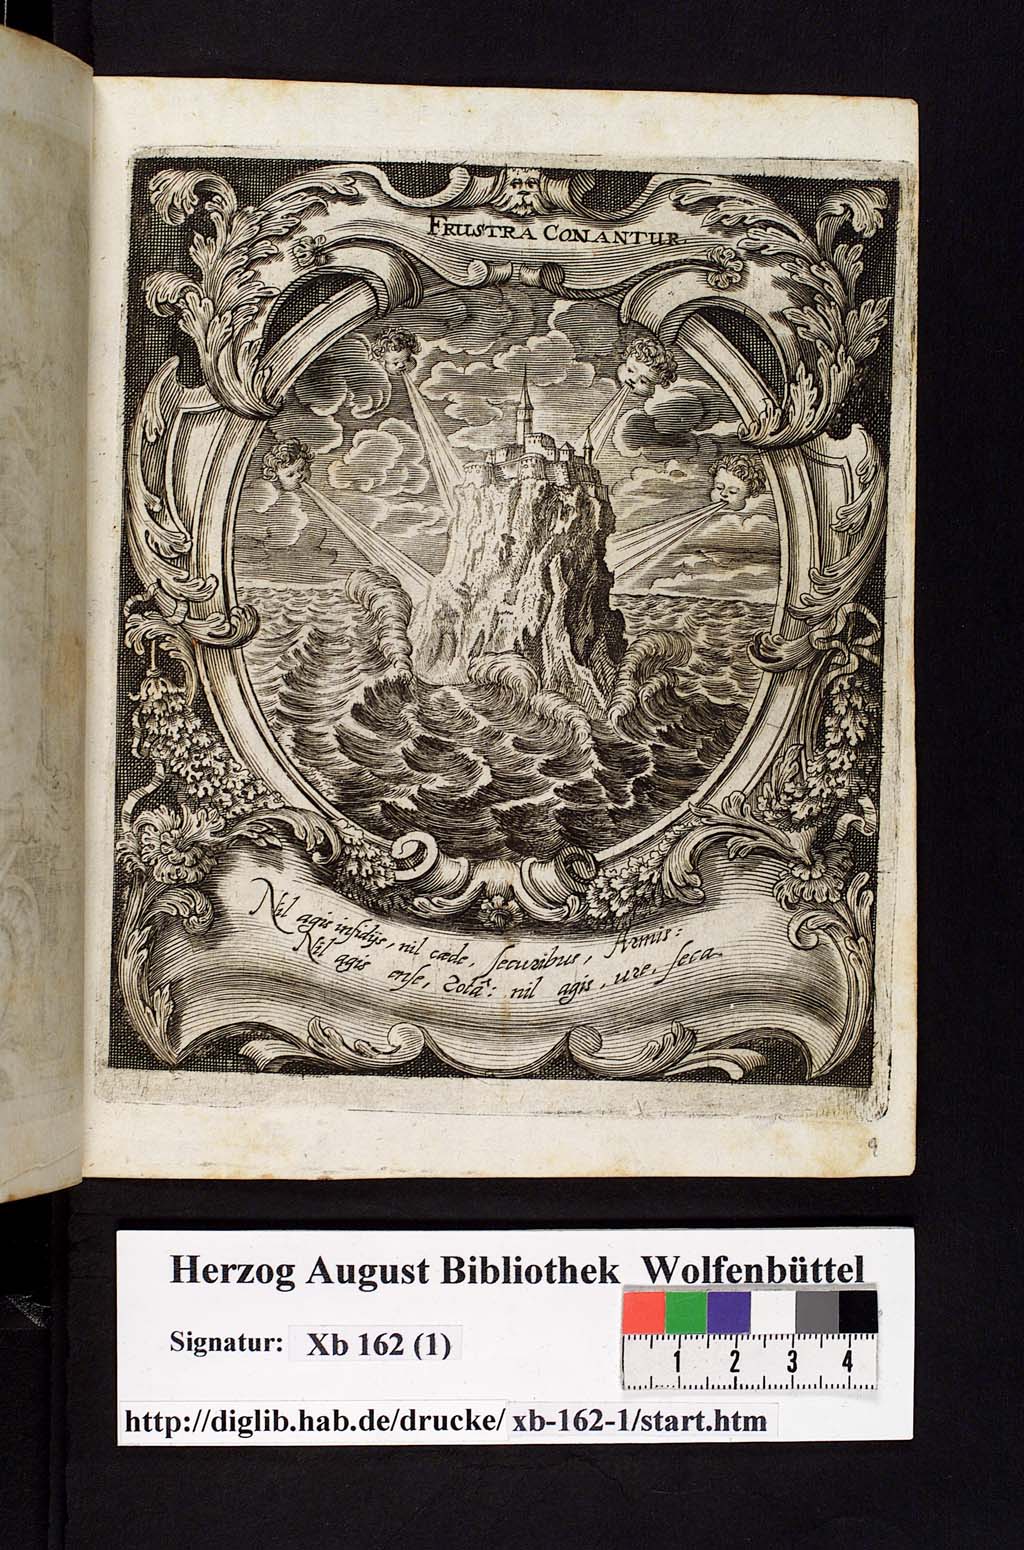 FRUSTRA CONANTUR.
Nil agis insidijs, nil cæde, securibus, Armis:
Nil agis ense, Rotâ: nil agis, ure, seca.
9
Herzog August Bibliothek Wolfenbüttel
Signatur: Xb 162 (1)
1 2 3 4
http://diglib.hab.de/drucke/xb-162-1/start.htm